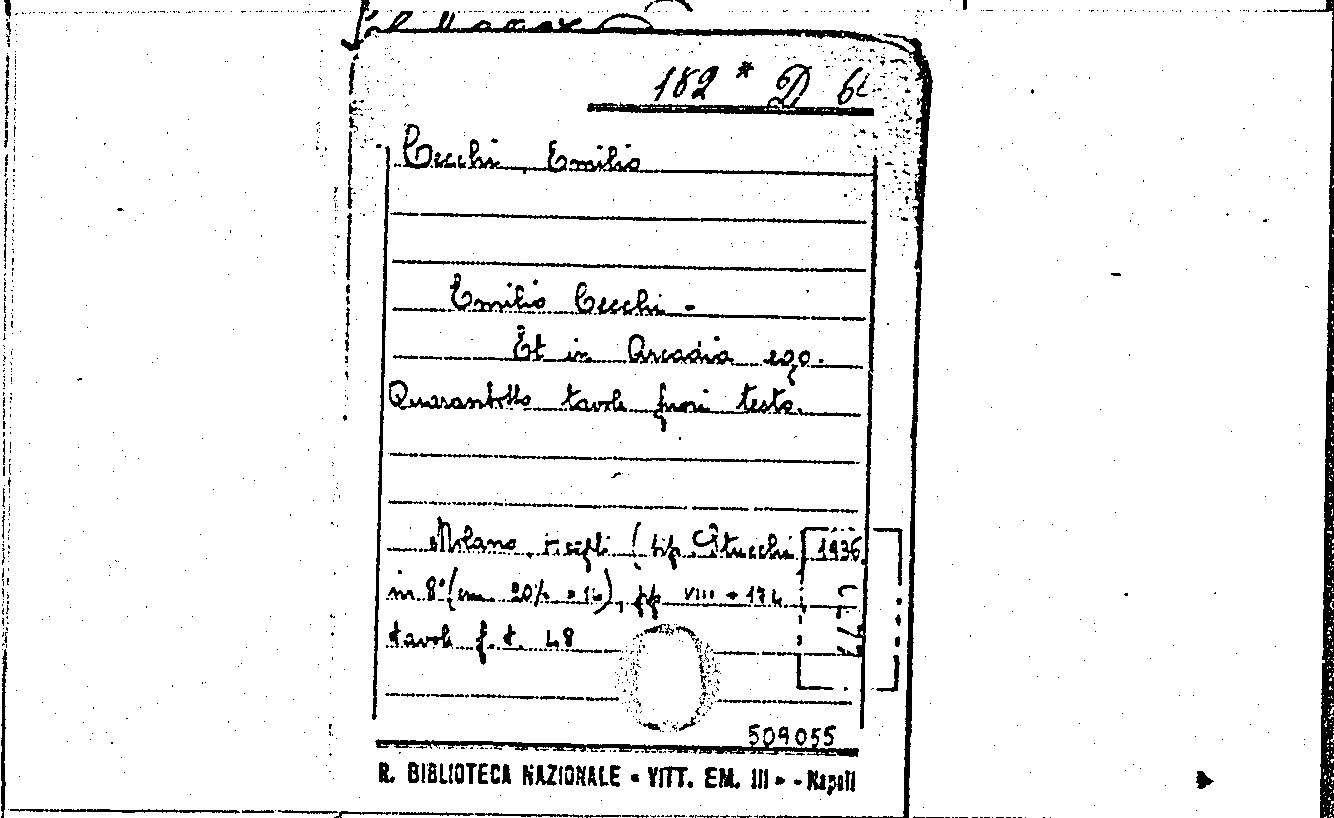 182 * D 6
Cecchi, Emilio
Emilio Cecchi -
Et in Arcadia ego.
Quarantotto tavole fuori testo.
Milano, Hoepli (tip. Stucchi) 1936
in 8° (cm. 20½ × 14), pp. VIII + 174
tavole f. t. 48
509055
R. BIBLIOTECA NAZIONALE « VITT. EM. III » - Napoli